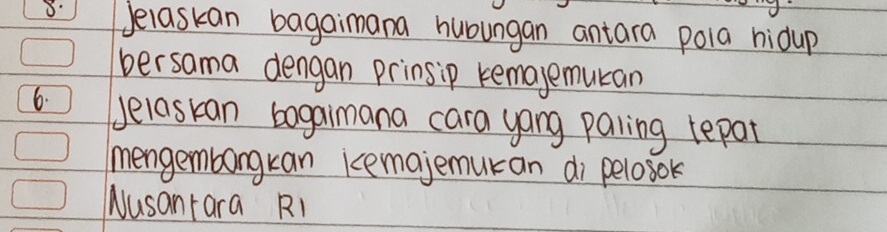 5. Jelaskan bagaimana hubungan antara pola hidup
bersama dengan prinsip kemajemukan
6. Jelaskan bagaimana cara yang paling tepat
mengembangkan kemajemukan di pelosok
Nusantara RI